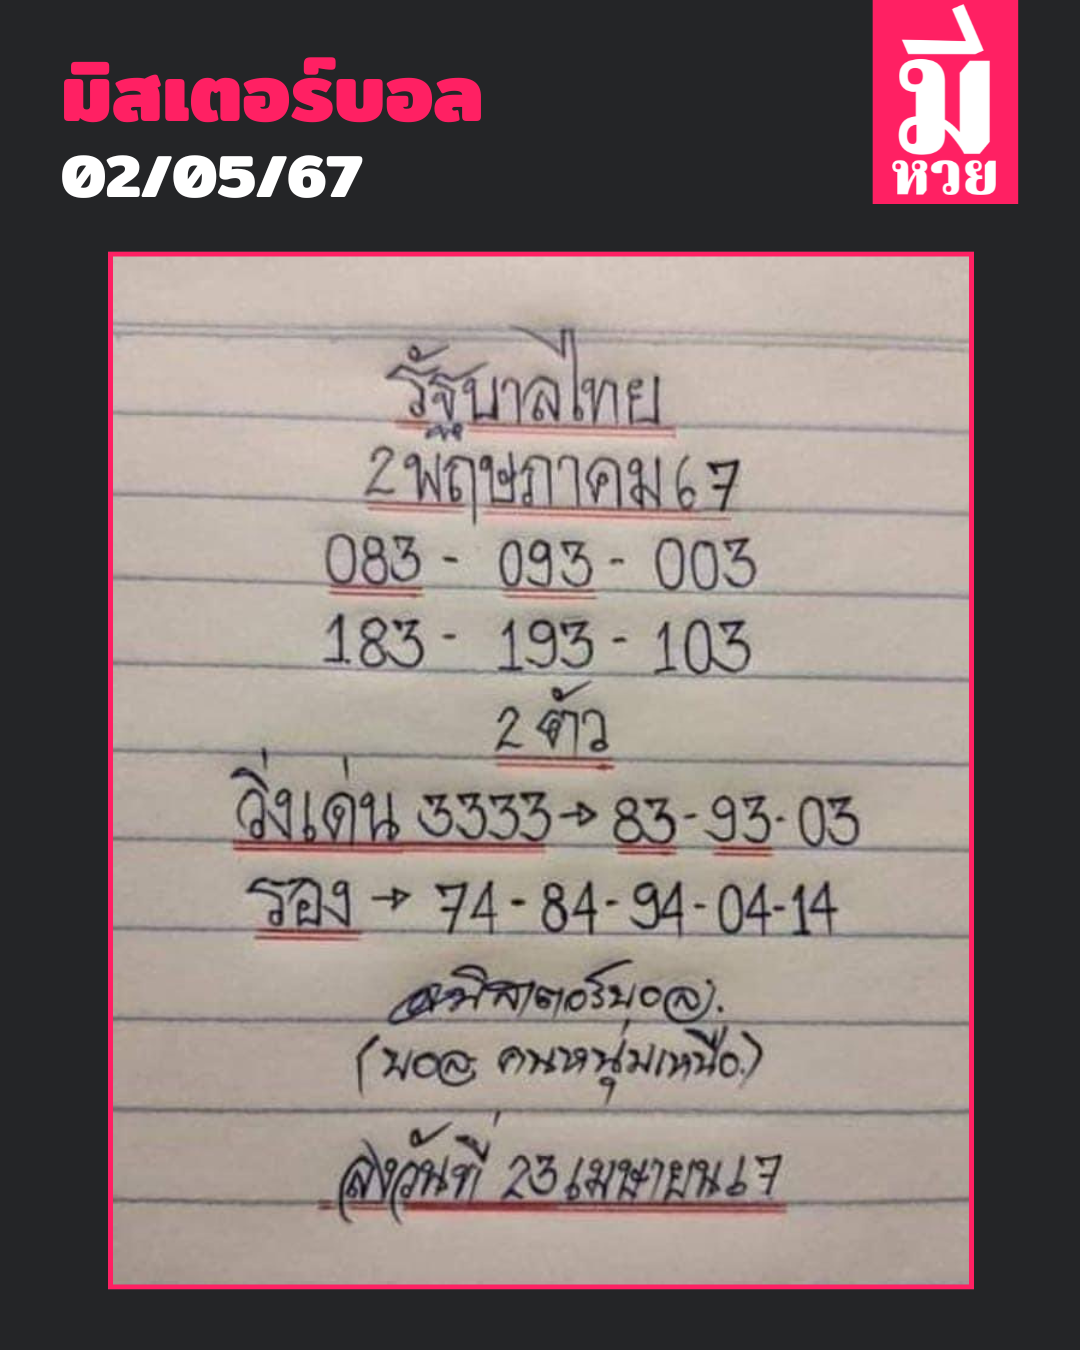 มิสเตอร์บอล
02/05/67
มี
หวย
รัฐบาลไทย
2 พฤษภาคม 67
083 - 093 - 003
183 - 193 - 103
2 ตัว
วิ่งเด่น 3333 → 83 - 93 - 03
รอง → 74 - 84 - 94 - 04 - 14
มิสเตอร์บอล.
(บอล คนหนุ่มเหนือ.)
ลงวันที่ 23 เมษายน 67